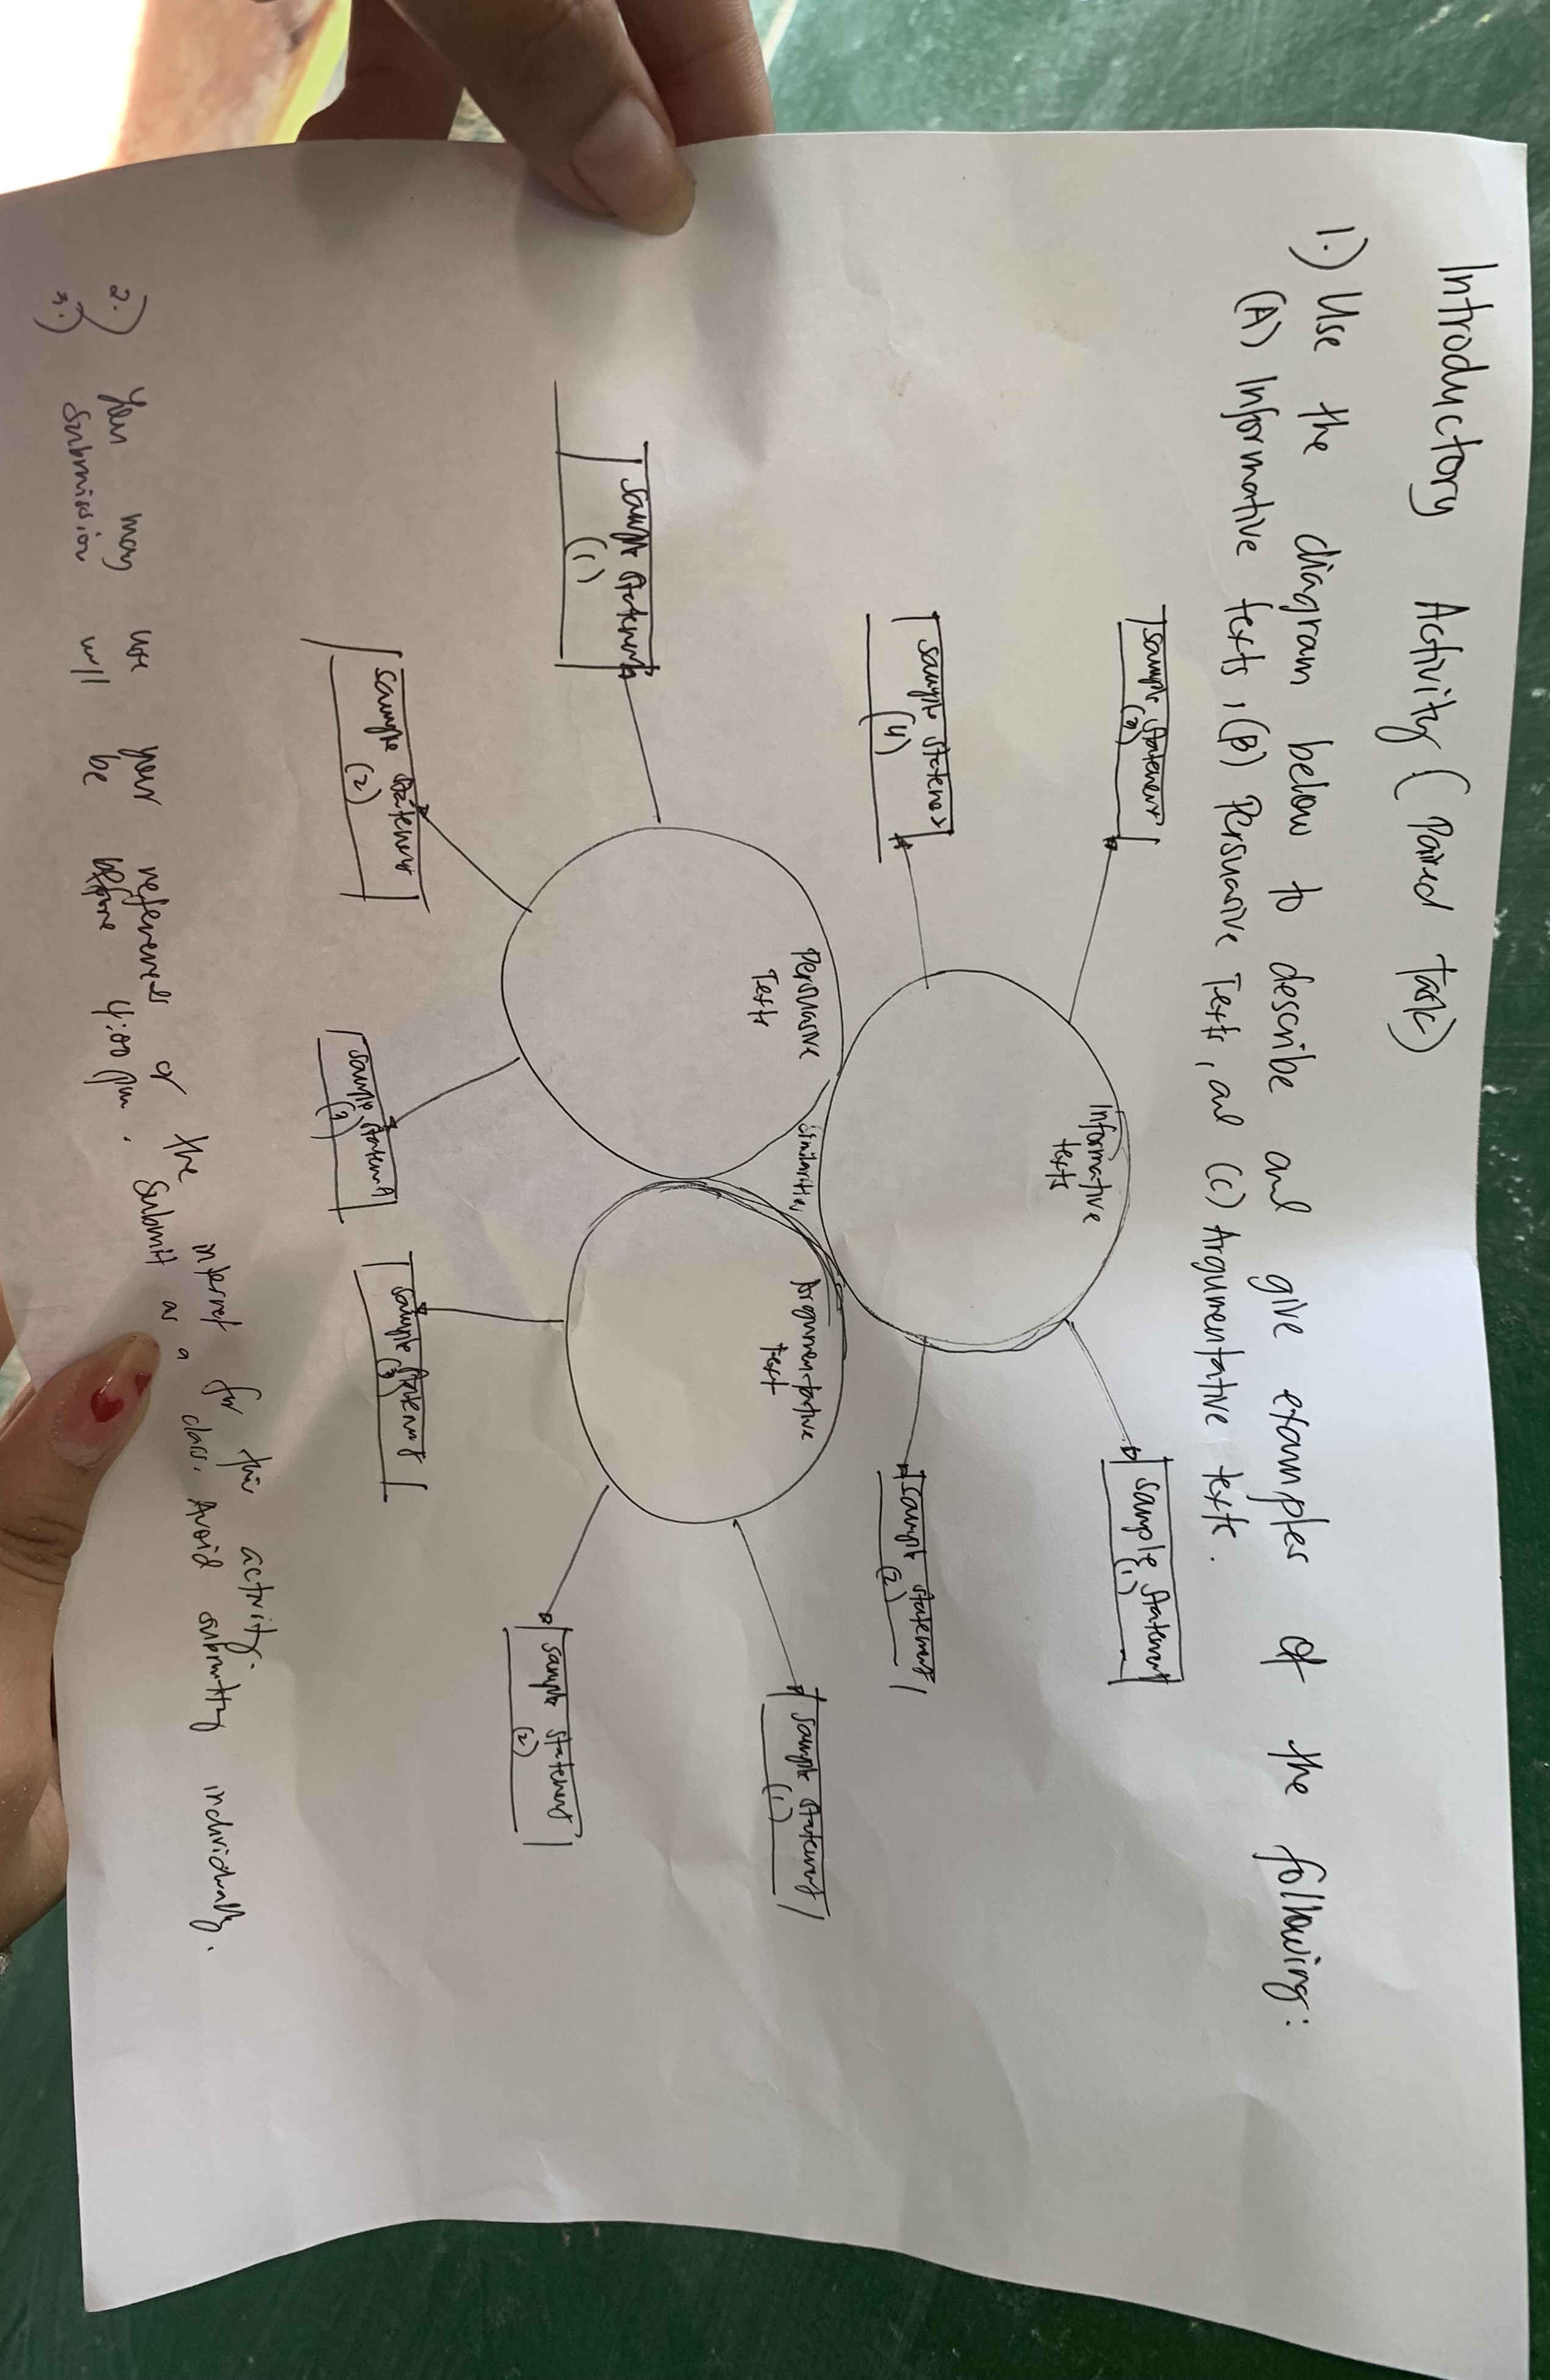 Introductory Activity (Paired Task)
1.) Use the diagram below to describe and give examples of the following:
(A) Informative texts, (B) Persuasive Texts, and (C) Argumentative texts.
sample statement
(3)
sample statement
(1)
Informative
texts
sample statement
(4)
sample statement
(2)
similarities
Persuasive
Texts
Argumentative
text
sample statement
(1)
sample statement
(1)
sample statement
(2)
sample statement
(3)
sample statement
(3)
sample statement
(2)
2.) You may use your references or the internet for this activity.
3.) Submission will be before 4:00 pm. Submit as a class. Avoid submitting individually.